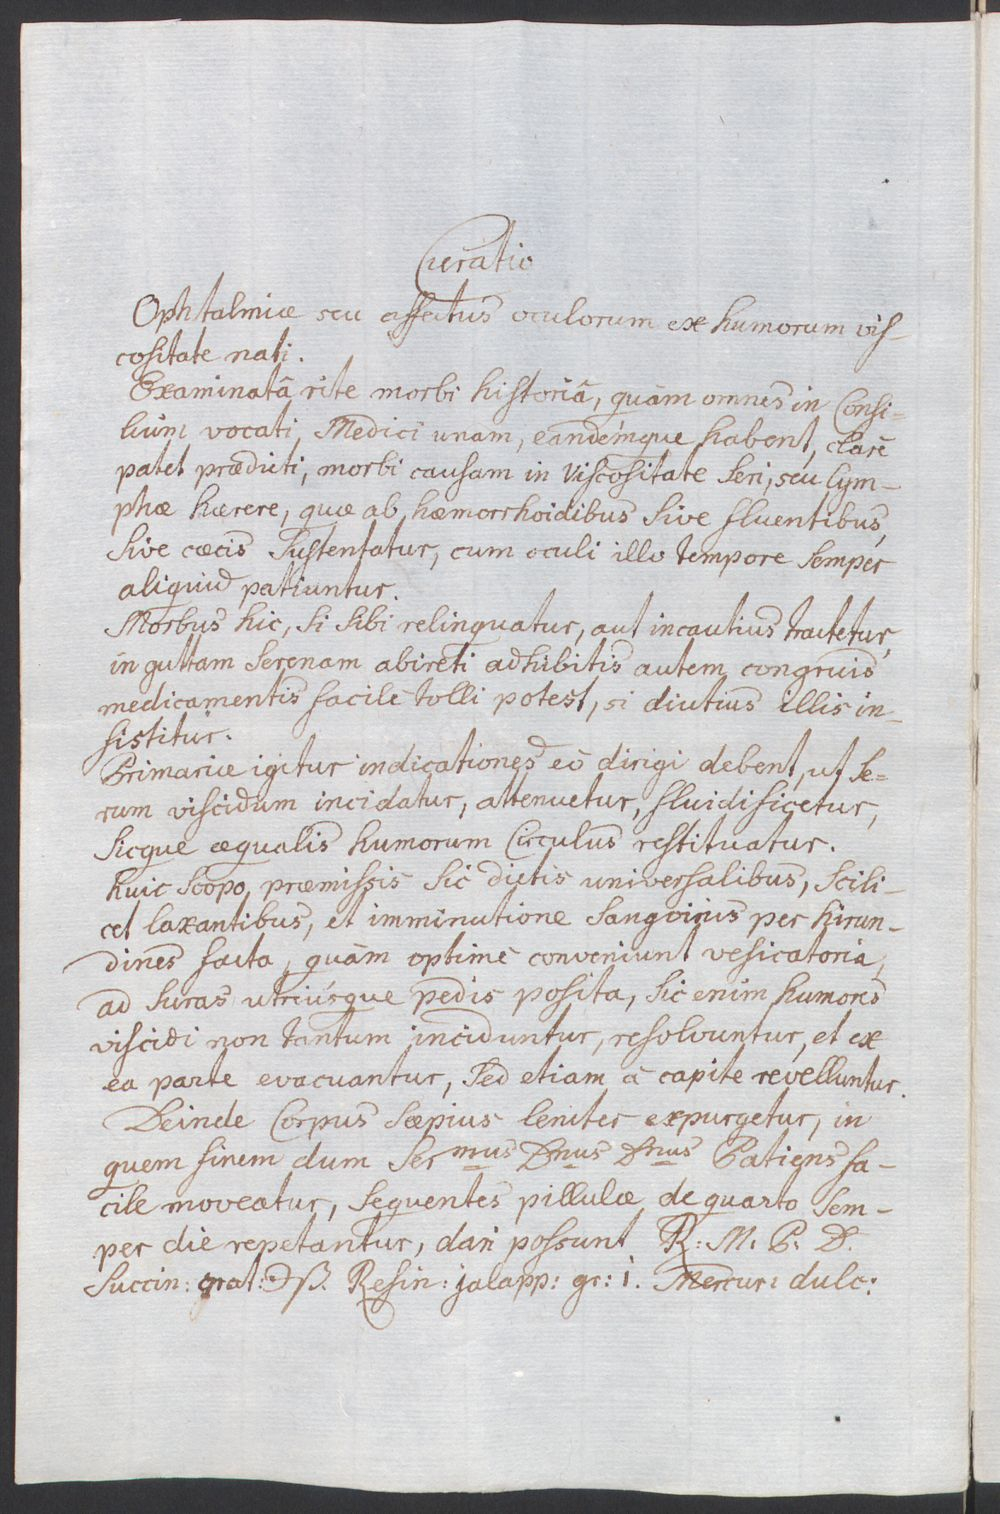 Curatio
Ophtalmiæ seu affectus oculorum ex humorum vis-
cositate nati.
Examinatâ rite morbi historiâ, quàm omnes in Consi=
lium vocati, Medici unam, eandémque habent, clarè
patet prædicti, morbi causam in viscositate Seri, seu Lym-
phæ hærere, quæ ab hæmorrhoidibus Sive fluentibus,
Sive cæcis Sustentatur, cum oculi illo tempore Semper
aliquid patiuntur.
Morbus hic, Si Sibi relinquatur, aut incautius tractetur,
in guttam Serenam abiret; adhibitis autem congruis
medicamentis facilè tolli potest, si diutius illis in-
sistitur.
Primariæ igitur indicationes eò dirigi debent, ut Se=
rum viscidum incidatur, attenuetur, fluidificetur,
Sicque æqualis humorum Circulus restituatur.
huic Scopo, præmissis Sic dictis universalibus, Scili-
cet laxantibus, et imminutione Sanguinis per hirun-
dines facta, quàm optimè conveniunt vesicatoria,
ad Suras utriúsque pedis posita, Sic enim humores
viscidi non tantum inciduntur, resolvuntur, et ex
ea parte evacuantur, Sed etiam à capite revelluntur.
Deinde Corpus Sæpius leniter expurgetur, in
quem finem dum Ser mus Dnus Dnus Patiens fa-
cile moveatur, Sequentes pillulæ de quarto Sem-
per die repetantur, dari possunt ℞: M. P. D.
Succin: prat: ℈ß. Resin: jalapp: gr: i. Mercur: dulc: